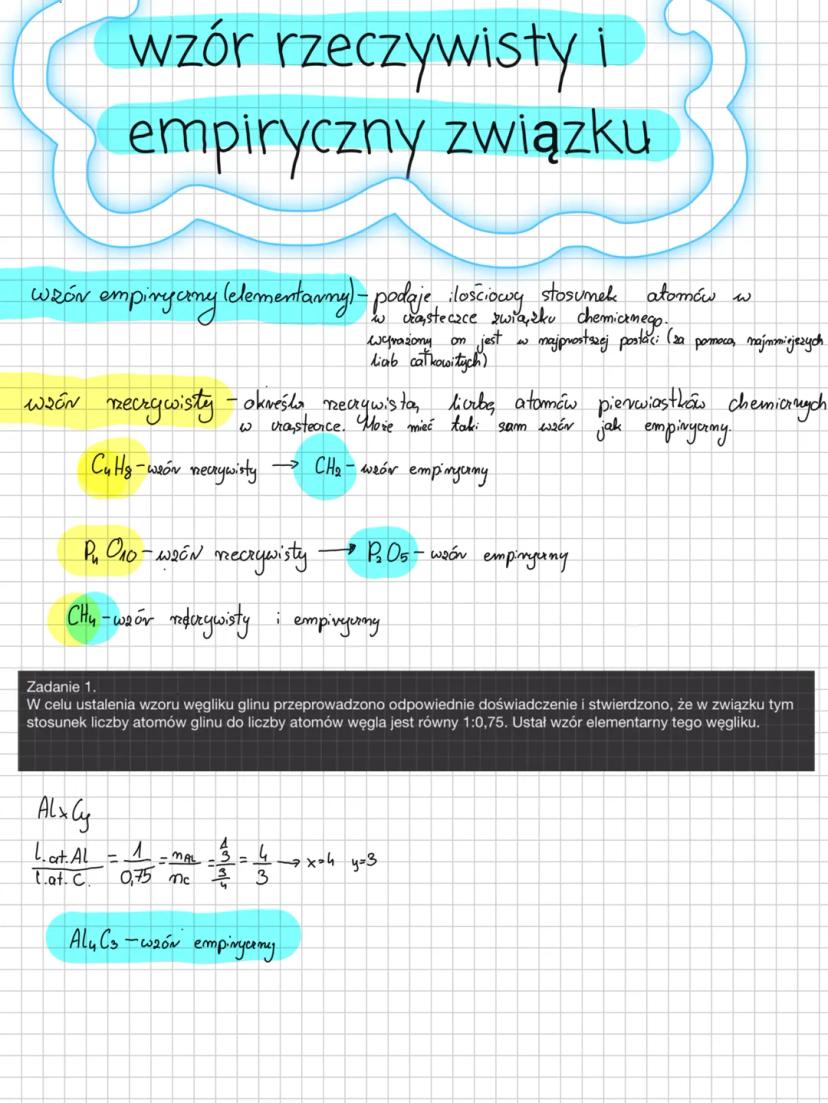 wzór rzeczywisty i
empiryczny związku
wzór empiryczny (elementarny) - podaje ilościowy stosunek atomów w
w cząsteczce związku chemicznego.
wyrażony on jest w najprostszej postaci (za pomocą najmniejszych
liczb całkowitych)
wzór rzeczywisty - określa rzeczywistą liczbę atomów pierwiastków chemicznych
w cząsteczce. Może mieć taki sam wzór jak empiryczny.
C₄H₈ - wzór rzeczywisty → CH₂ - wzór empiryczny
P₄O₁₀ - wzór rzeczywisty → P₂O₅ - wzór empiryczny
CH₄ - wzór rzeczywisty i empiryczny
Zadanie 1.
W celu ustalenia wzoru węgliku glinu przeprowadzono odpowiednie doświadczenie i stwierdzono, że w związku tym
stosunek liczby atomów glinu do liczby atomów węgla jest równy 1:0,75. Ustal wzór elementarny tego węgliku.
AlxCy
l.at.Al / l.at.C. = 1/0,75 = nAl/nC = = 4/3 → x=4 y=3
Al₄C₃ - wzór empiryczny